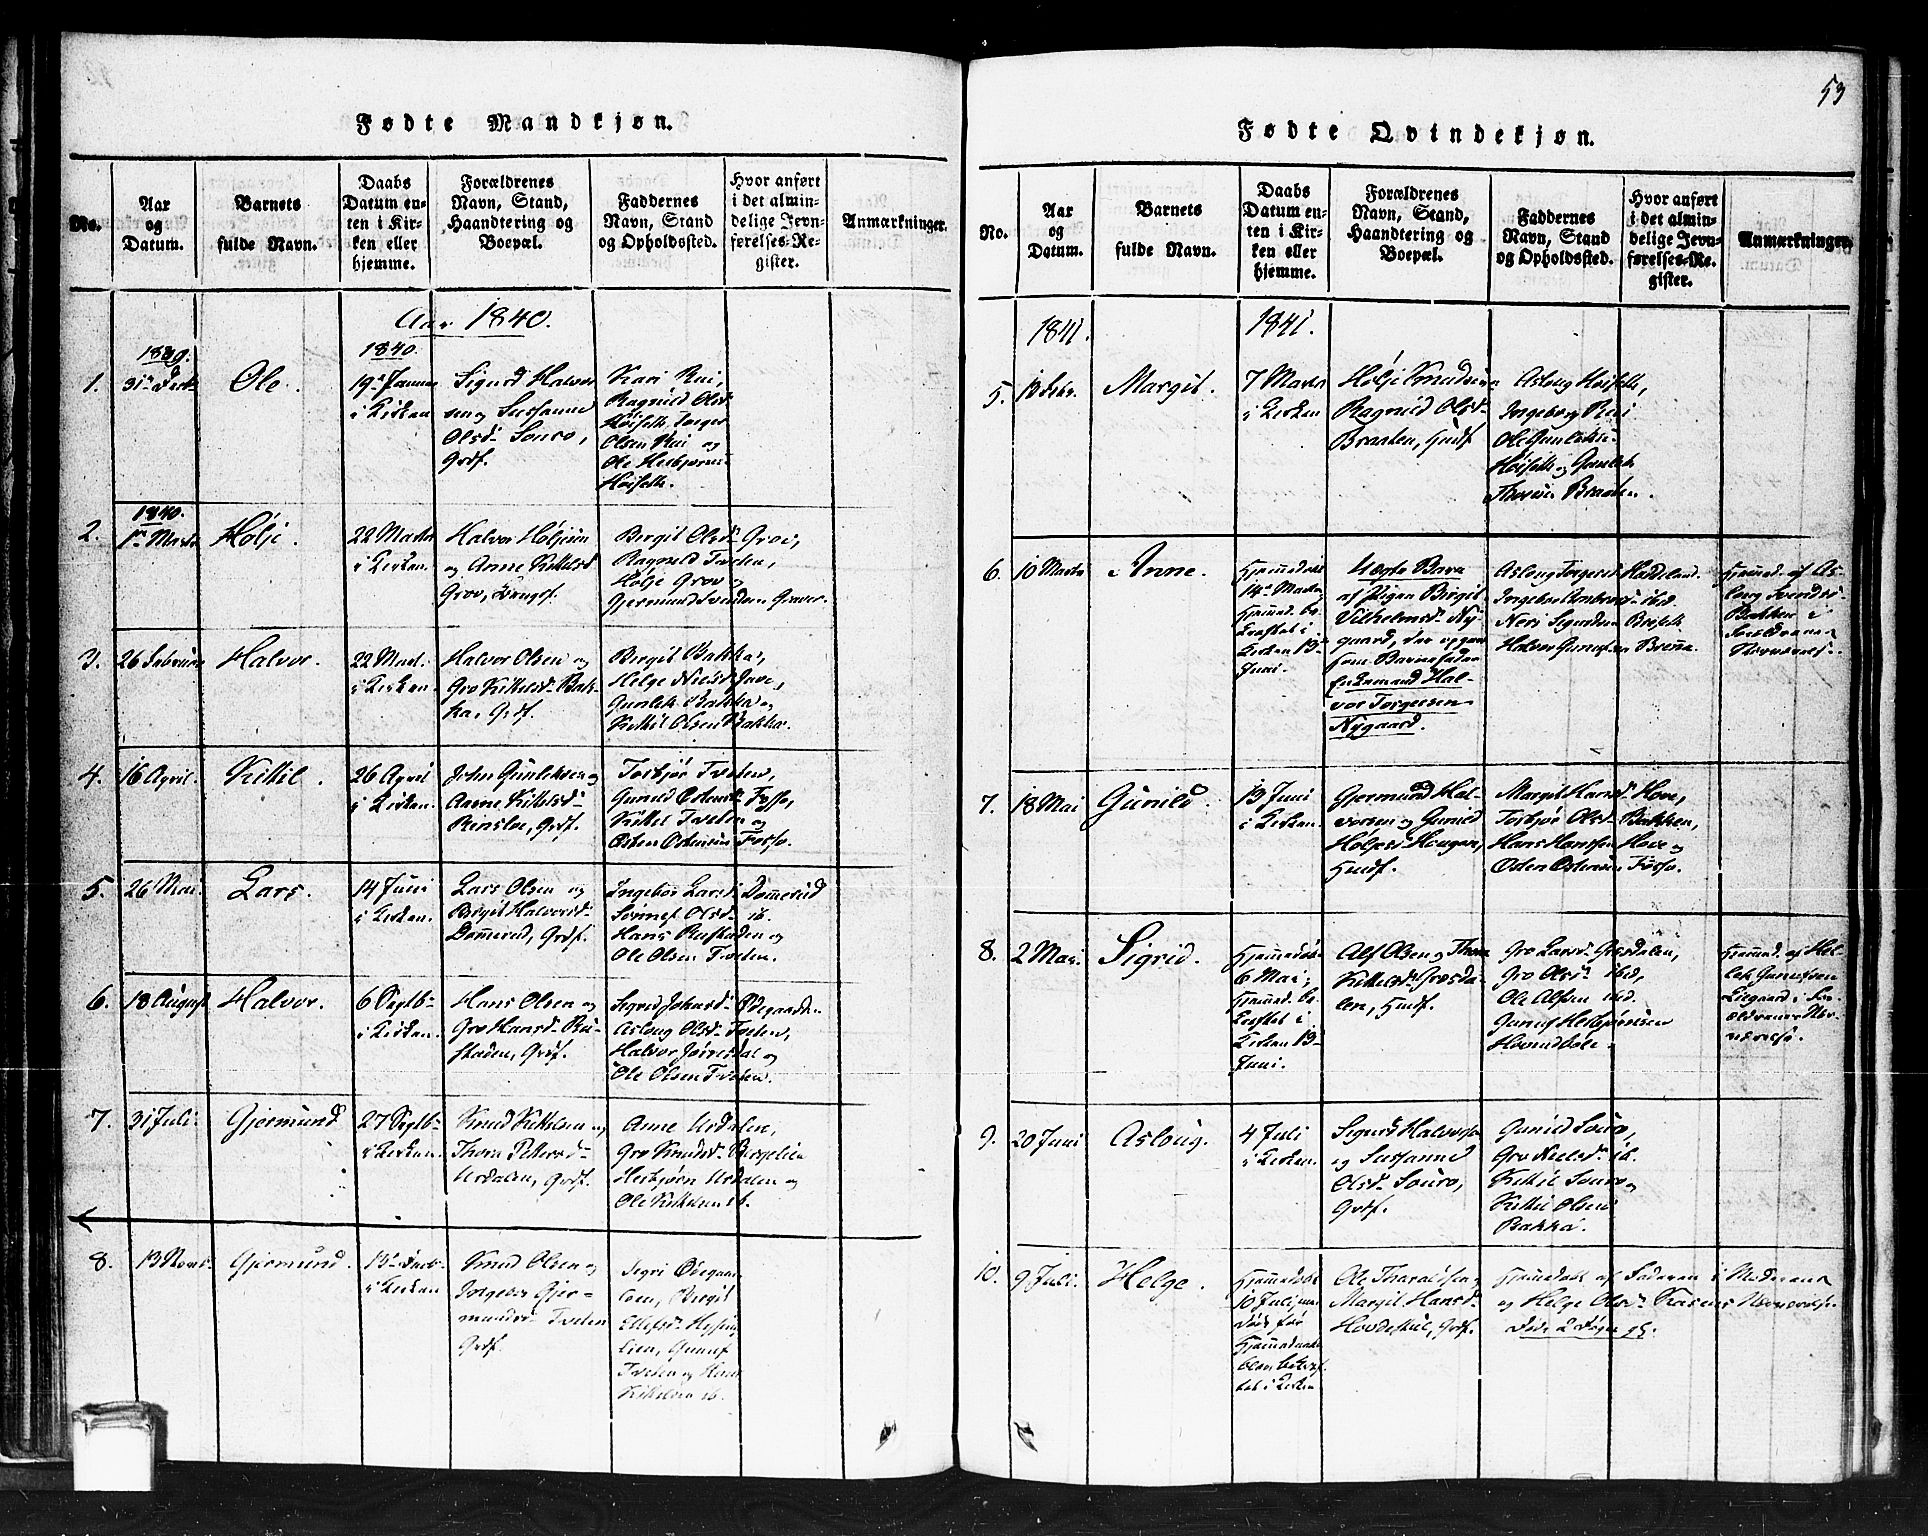 53
Fødte Mandkjøn.
No.
Aar
og
Datum.
Barnets
fulde Navn.
Daabs
Datum en-
ten i Kir-
ken eller
hjemme.
Forældrenes
Navn, Stand,
Haandtering og
Boepæl.
Faddernes
Navn, Stand
og Opholdssted.
Hvor anført
i det almin-
delige Jevn-
førelses-Re-
gister.
Anmærkninger.
Aar 1840.
1.
1839.
31te Decbr
Ole.
1840.
19de Januar
i Kirken
Sigurd Halvor
sen og Susanne
Olsd. Souro,
Grdf.
Kari Rui,
Ragnild Olsd.
Høiseth, Torger
Olsen Rui og
Ole Herbjørns:
Høiseth.
2.
1840.
1te Marts
Hølje.
22 Marts
i Kirken.
Halvor Høljesen
og Anne Kittelsd
Grov,
Birgit Olsd. Grov,
Ragnild Tveten,
Hølje Grov og
Gjermund Svendsen Graver.
3.
26 Februar
Halvor.
22 Mart.
i Kirken.
Halvor Olsen og
Gro Kittelsd. Bak-
ka, Grdf.
Birgit Bakka,
Helge Nielsd.
Gunlek Bakka og
Kittil Olsen Bakka.
4.
16 April.
Kittil.
26 April
i Kirken.
John Gunleksen og
Anne Kittelsd.
Grdf.
Torbjør Tveten,
Gunild Østensd. Fosso,
Kittil Tveten og
Østen Østensen Fosso.
5.
26 Mai.
Lars.
14 Juni
i Kirken.
Lars Olsen og
Birgit Halvorsd.
Dommerud, Grdf.
Ingebor Larsd. Dommerud
Olsd. ib.
Hans Rustaden og
Ole Olsen Tveten.
6.
18 August
Halvor.
6 Septb.
i Kirken.
Hans Olsen og
Gro Hansd. Ru-
staden, Grdf.
Sigrid Johnsd. Ødegaarden
Asloug Olsd. Tveten,
Halvor og
Ole Olsen Tveten.
7.
31 Juli.
Gjermund
27 Septb.
i Kirken.
Knud Kittelsen og
Thora Pettersd.
Urdalen, Grdf.
Anne Urdalen,
Gro Knudsd.
Herbjørn Urdalen og
Ole Kittelsen ib.
8.
13 Novb.
Gjermund.
13de Decb.
i Kirken
Knud Olsen og
Ingebor Gjer-
mundsd. Tveten
Grdf.
Sigri Ødegaar-
den, Birgit
Ellefsd.
lien, Gunuf
Tveten og
Kittelsen ib.
Fødte Qvindekjøn.
No.
Aar
og
Datum.
Barnets
fulde Navn.
Daabs
Datum en-
ten i Kir-
ken eller
hjemme.
Forældrenes
Navn, Stand,
Haandtering og
Boepæl.
Faddernes
Navn, Stand
og Opholdssted.
Hvor anført
i det almin-
delige Jevn-
førelses-Re-
gister.
Anmærkninger.
1841.
1841.
5.
Febr.
Margit.
7 Marts
i Kirken
Hølje Knudsen
Ragnild Olsd.
Braaten, Husf.
Asloug Høiseth,
Ingeborg Rui
Ole Gunleks:
Høiseth og Gunlek
Braaten.
6.
10 Marts
Anne.
Hjemmedøbt
14de Marts
Hjemmed. be-
kræftet i
Kirken 13
Juni.
Uægte Barn
af Pigen Birgit
Vilhelmsd. Ny-
gaard, der opgav
som Barnefader
Enkemand Hal-
vor Torgersen
Nygaard.
Aslaug Torgersd. Haddeland.
ibid.
Sigurdsen
Halvor Gunufsen
Hjemmed. af As-
laug Svendsd.
Bakken i
Forældrenes
Nærværelse.
7.
18 Mai
Gunild.
13 Juni
i Kirken.
Gjermund Hal-
vorsen og Gunild
Høljesd. Haugen,
Husf.
Margit Hansd. Hove,
Torbjør Olsd. Bakken,
Hans Hanssen Hove og
Østen Østensen Fosso.
8.
2 Mai.
Sigrid.
Hjemmedøbt
6 Mai,
Hjemmed. be-
kræftet i
Kirken 13
Juni.
Alf Olsen og Thora
Kittelsd. Græsda-
len, Husf.
Gro Larsd. Græsdalen,
Gro Olsd. ibid,
Ole Alfsen ibid.
Gunuf Herbjørnsen
Hovindbøle.
Hjemmed. af Høl-
Gunufsen
i For-
ældrenes Nær-
værelse.
9.
20 Juni
Asloug.
4 Juli
i Kirken.
Sigurd Halvorsen
og Susanne
Olsd. Souro,
Grdf.
Gunild Souro,
Gro Nielsd. ib.
Kittil Souro og
Kittil Olsen
Bakka.
10.
9 Juli.
Helge.
Hjemmedøbt
10 Juli, men
døde før
Hjemmedaaben
blev bekræf-
tet i Kirken
Ole Tharaldsen og
Margit Hansd.
Hovdestul, Grdf.
Hjemmedøbt af Faderen i Moderens
og Helge Olsd. Nærværelse.
Døde 2 Døgn gl.